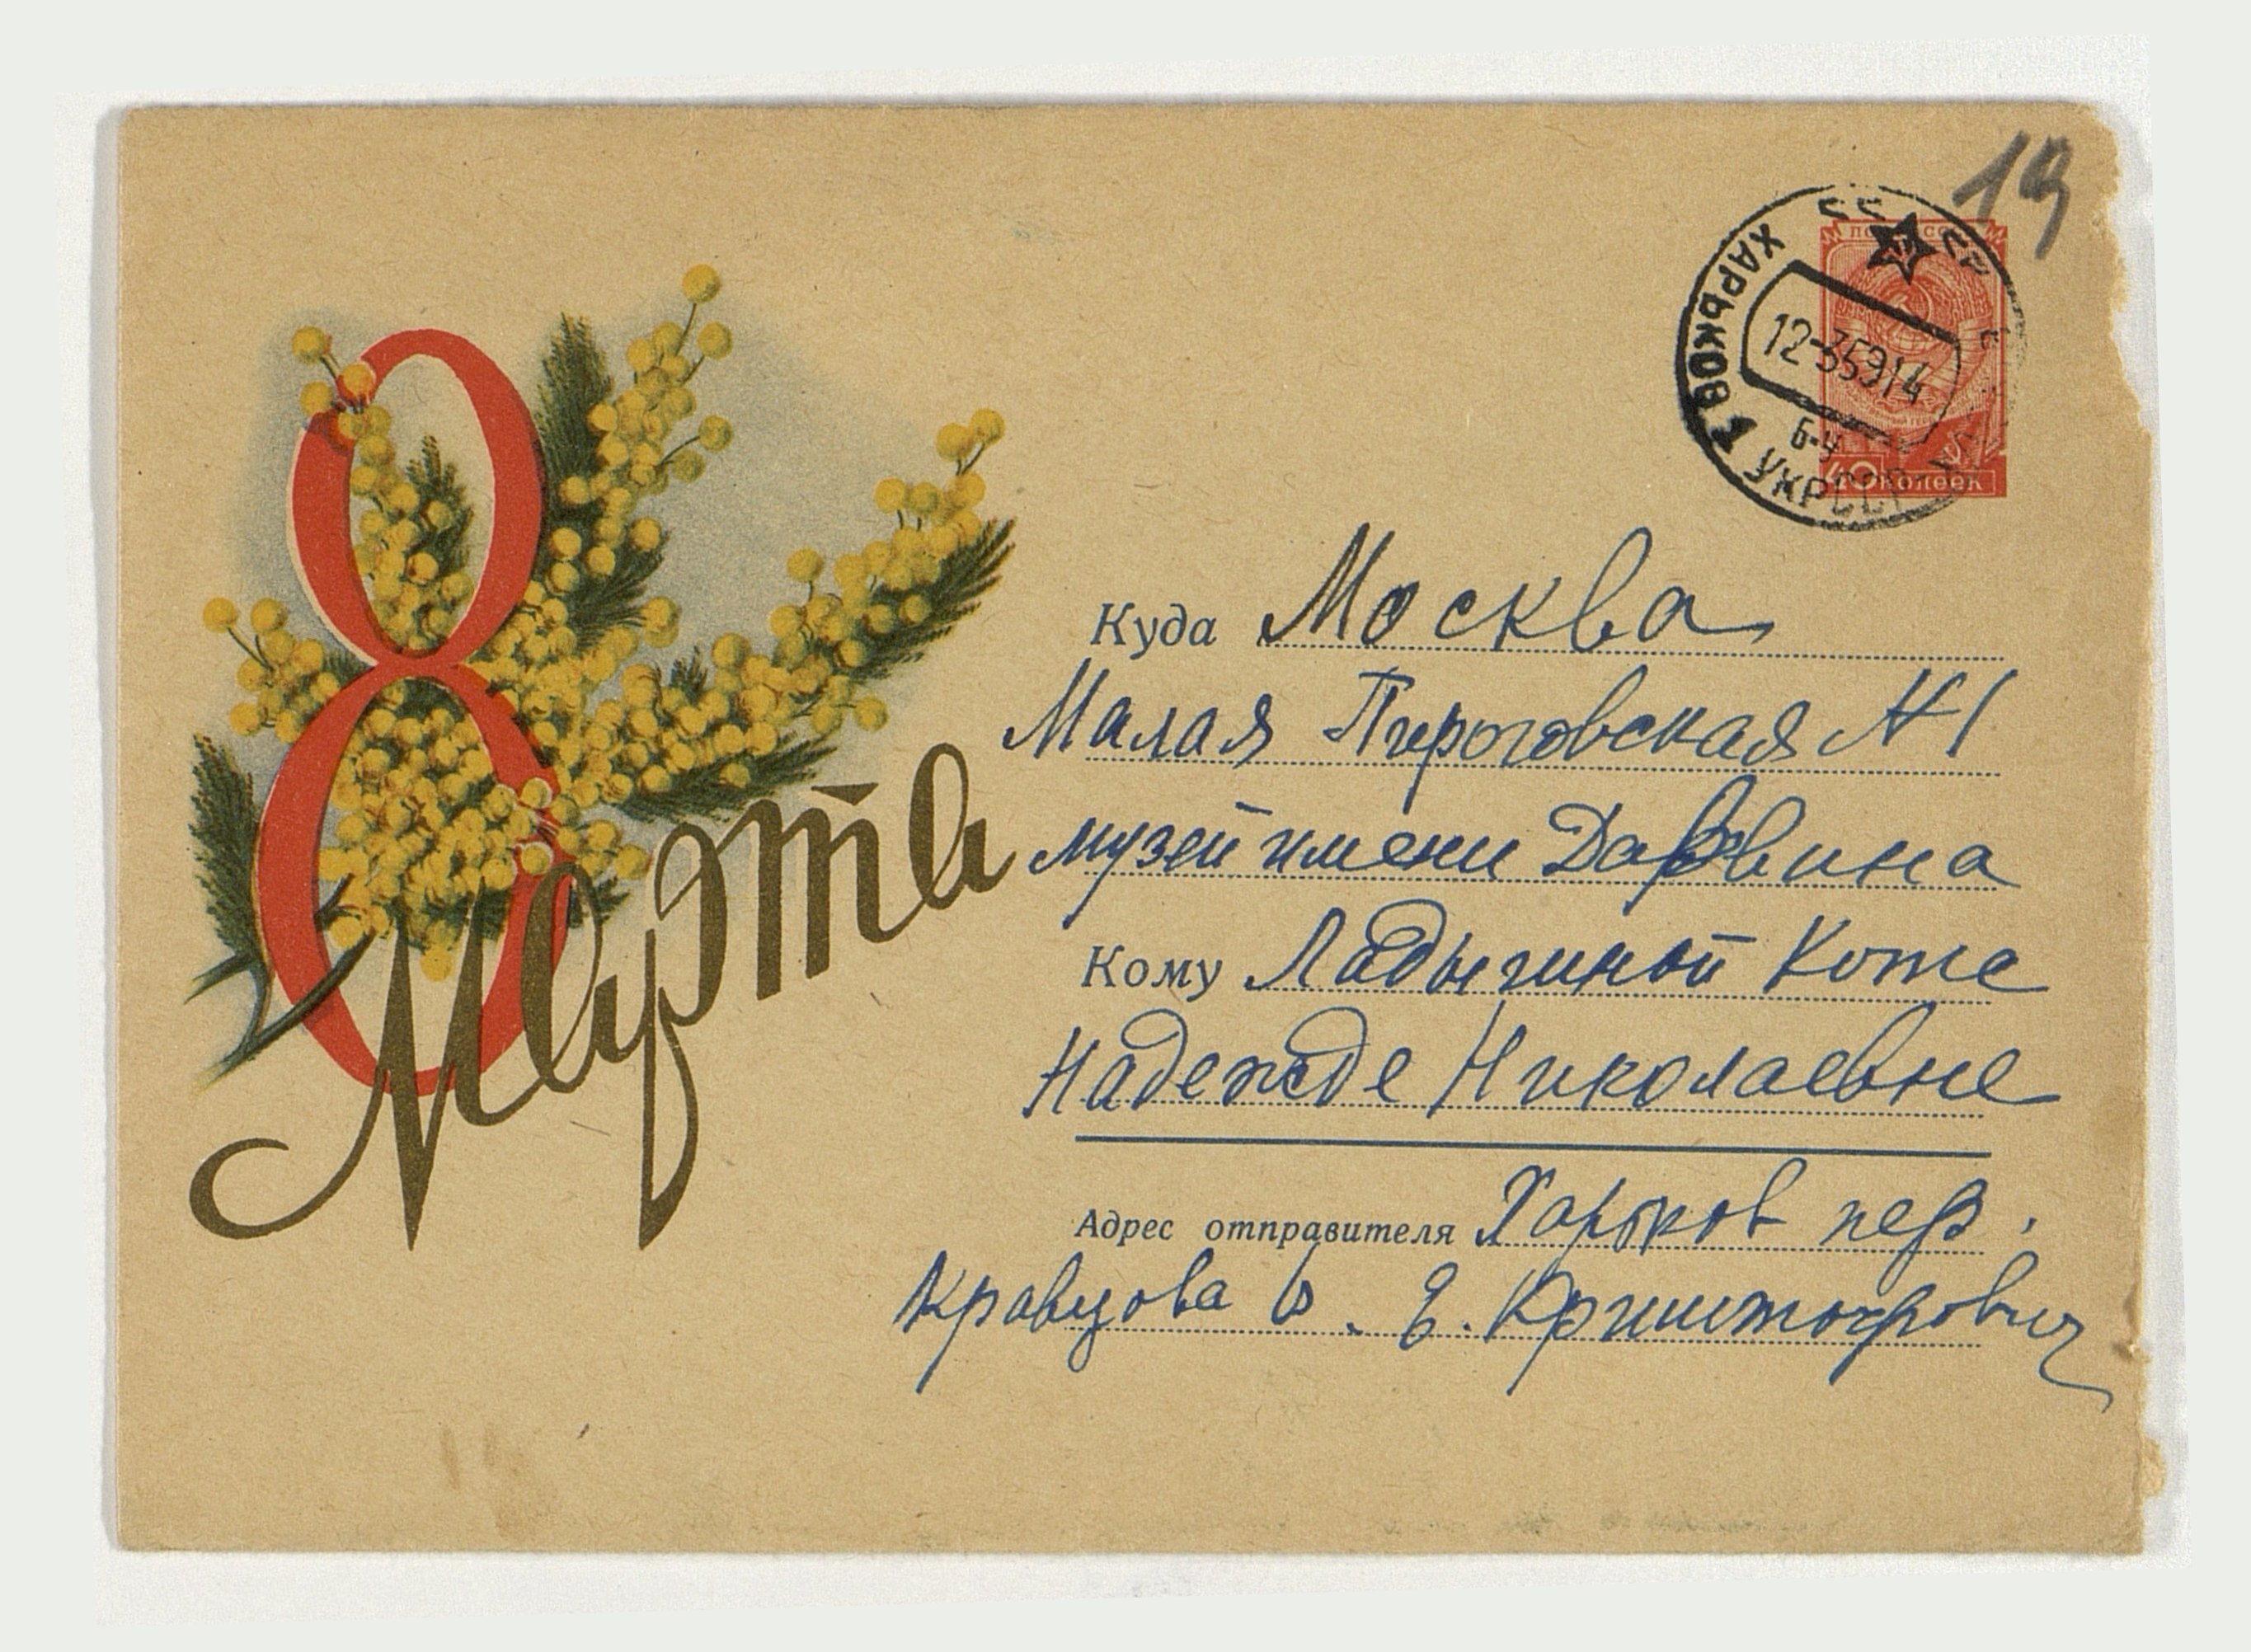 19
СССР
ХАРЬКОВ
12-35914
6-у
УКРССР
40 копеек
8
Марта
Куда Москва
Малая Пироговская N1
музей имени Дарвина
Кому Ладыгиной Котс
Надежде Николаевне
Адрес отправителя Харьков пер.
Кравцова 6. Е. Криштофович